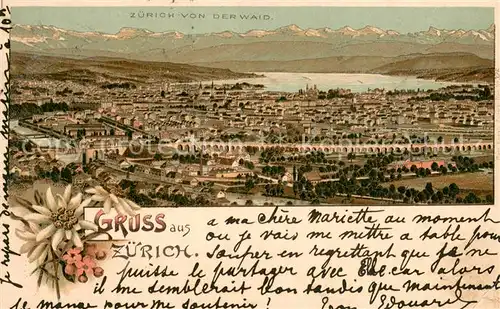 ZÜRICH VON DER WAID.
GRUSS aus
ZÜRICH.
a ma chère Mariette au moment
où je vais me mettre a table pour
souper en regrettant que tu ne
puisse le partager avec car alors
il me semblerait bon tandis que maintenant
je mange pour me soutenir ! Ton Edouard
je repars demain matin à 10